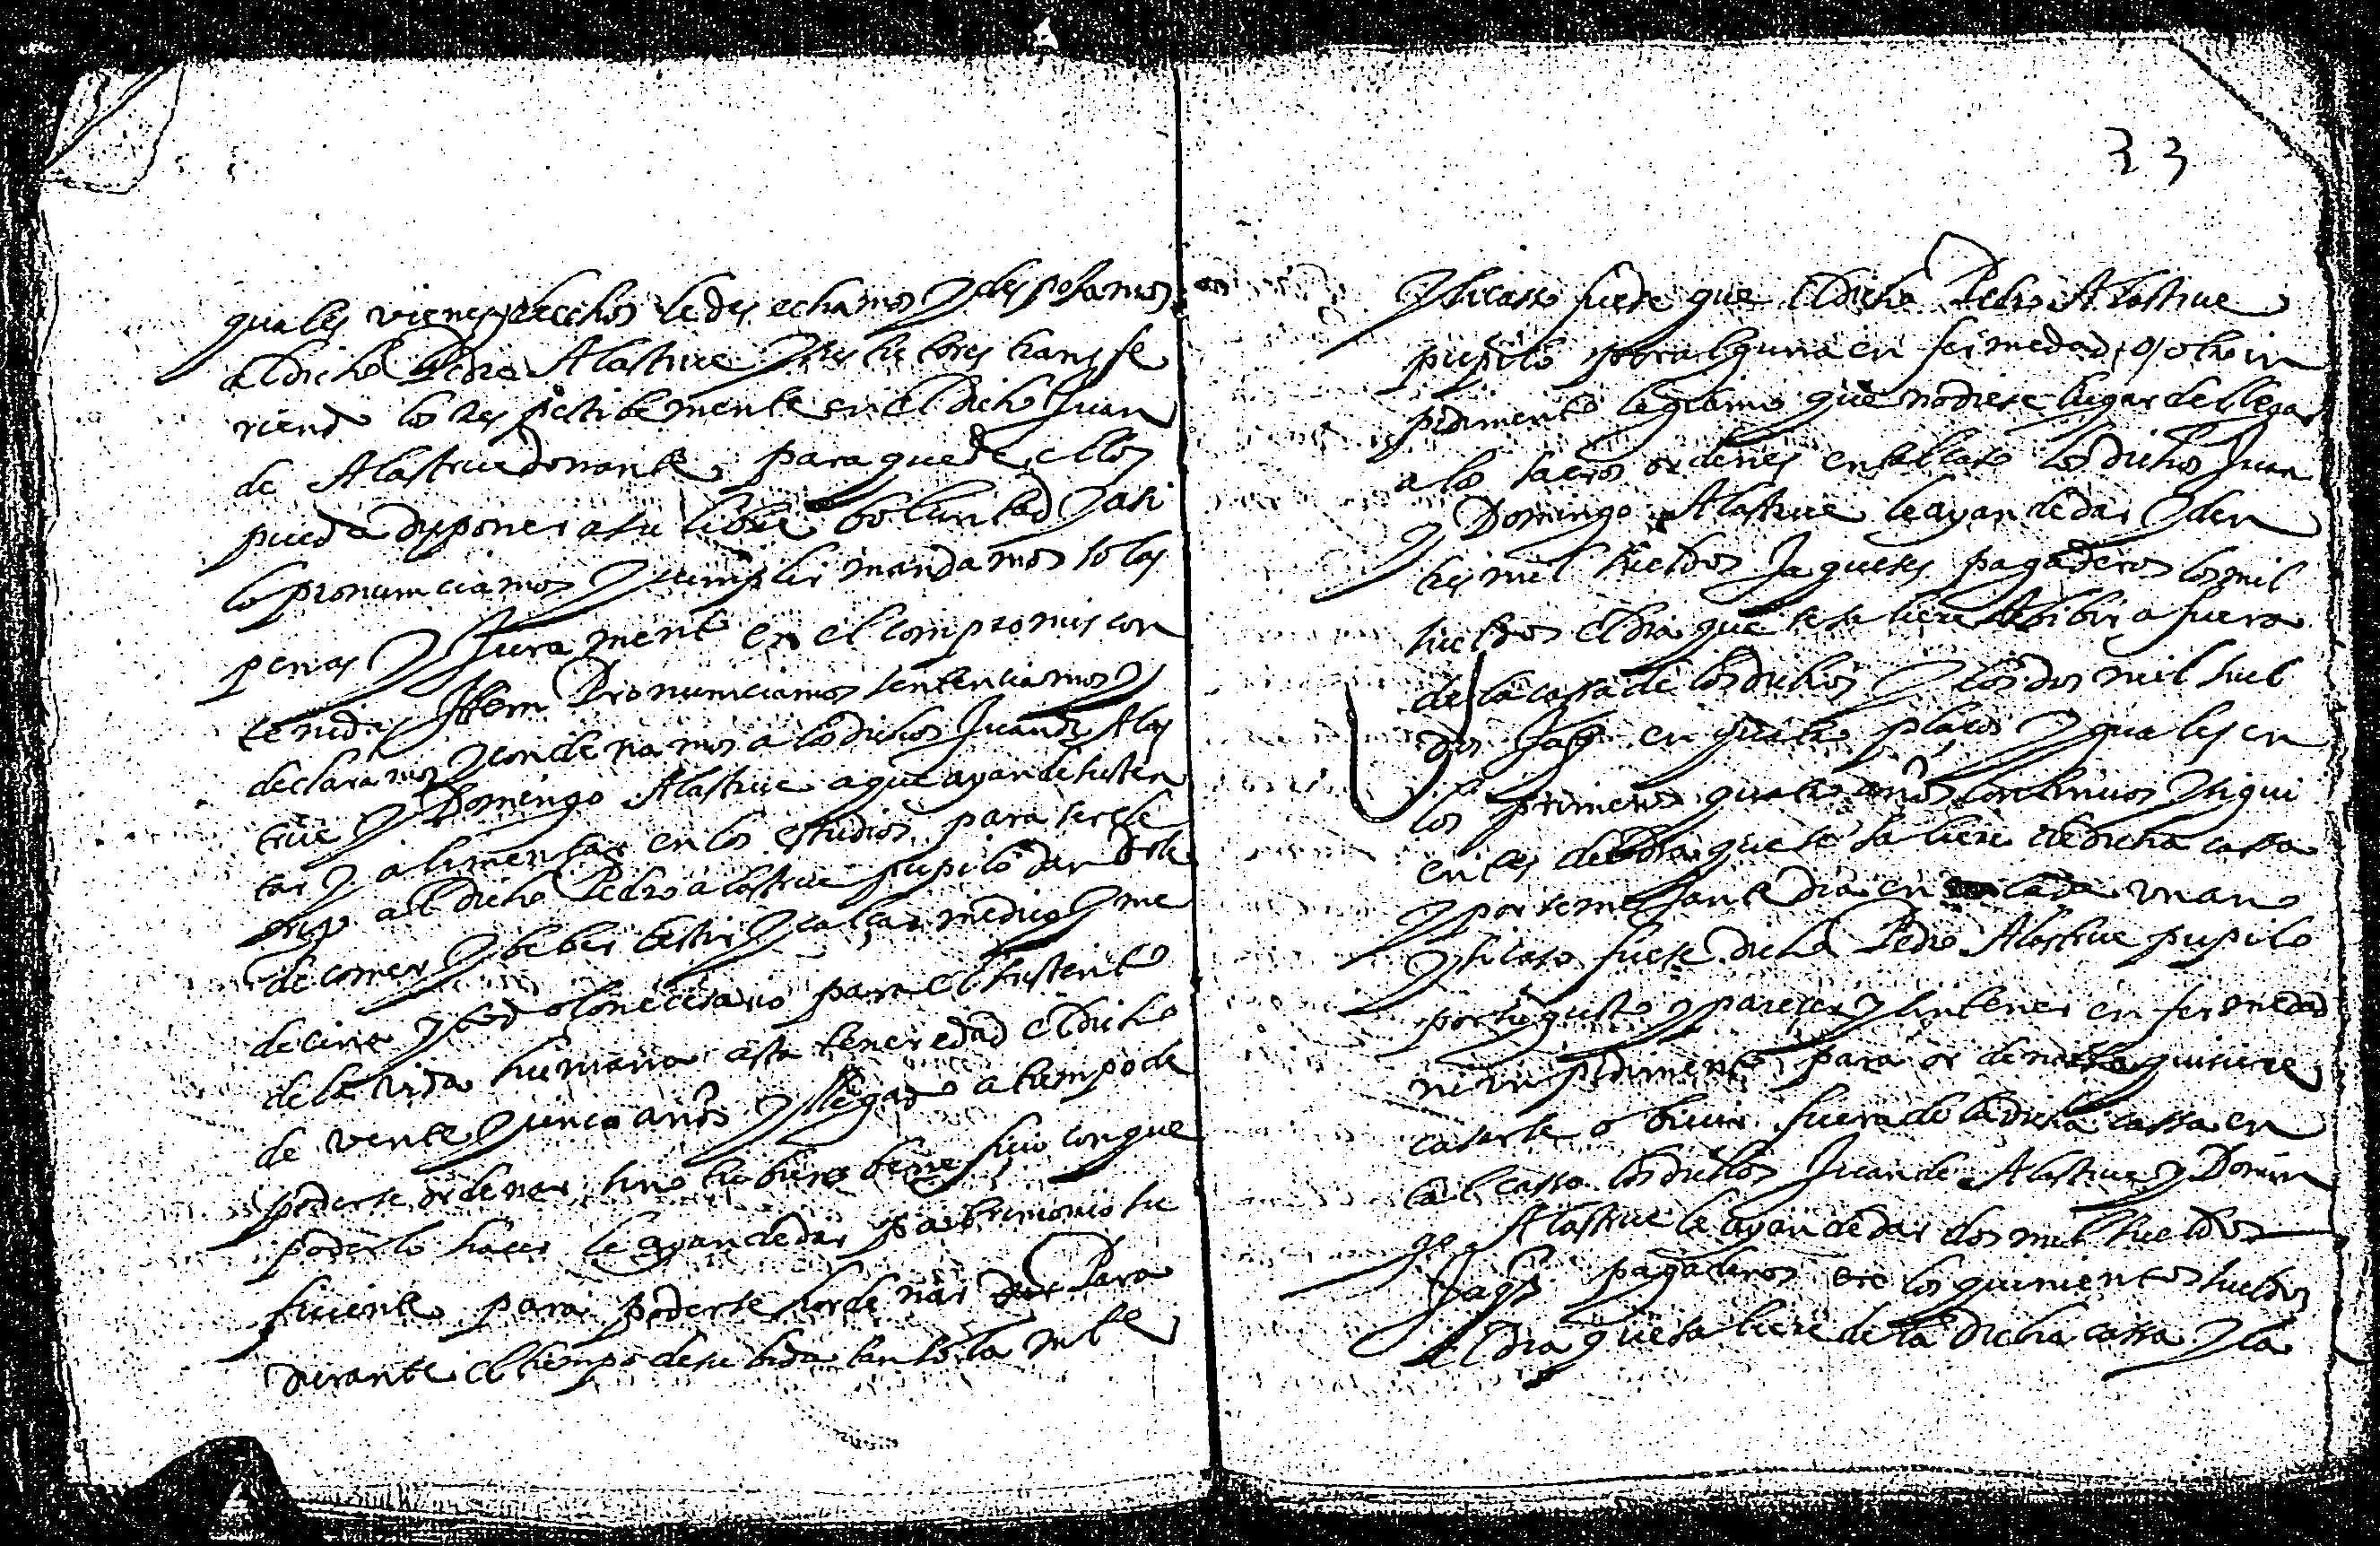 quales vienes y drechos le des echamos y desposamos
al dicho Pedro Alastrue y sus tutores transfe
riendo los respectibemente en el dicho Juan
de Alastrue donante para que de ellos
pueda disponer a su libre boluntad y asi
lo pronunciamos y cumplir mandamos so las
penas y Jurament en el compromis con
tenidas Item Pronunciamos sentenciamos y
declaramos y condenamos a los dichos Juan de Alas
true y Domingo Alastrue a que ayan de susten
tar y alimentar en los estudios para ser cle
rigo al dicho Pedro alastrue pupilo dandole
de comer y beber bestir y calçar medico y me
decina y todo lo necesario para el sustento
de la vida humana asta tener edad el dicho
de vente y cinco años y llegado a tiempo de
poderse ordenar sino tubiere beneficio con que
poderlo hacer le ayan de dar patrimonio su
ficiente para poderse hordenar Para
durante el tiempo de su bida tan solamte
33
Y si casso fuese que el dicho Pedro Alastrue
pupilo por alguna enfermedad, o, otro in
pedimento legitimo que no diese lugar de llegar
a los sacros ordenes en tal caso los dichos Juan
y Domingo Alastrue le ayan de dar y den
tres mil sueldos Jaqueses pagaderos los mil
sueldos el dia que se saliere a bibir a fuera
de la cassa de los dichos y los dos mil suel
dos Jaqs en quatro plaços yguales en
los primeros quatro años continuos y sigui
entes del dia que se saliere de dicha cassa
y por semejante dia en cada un año
Y si caso fuese dicho Pedro Alastrue pupilo
por su gusto y parecer y sin tener enfermedad
ni inpedimento para ordenarse quisiere
casarse o biuir fuera de la dicha cassa en
tal casso los dichos Juan de Alastrue y Domin
go Alastrue le ayan de dar dos mil sueldos
Jaqs pagaderos los quinientos sueldos
el dia que saliere de la dicha cassa y la